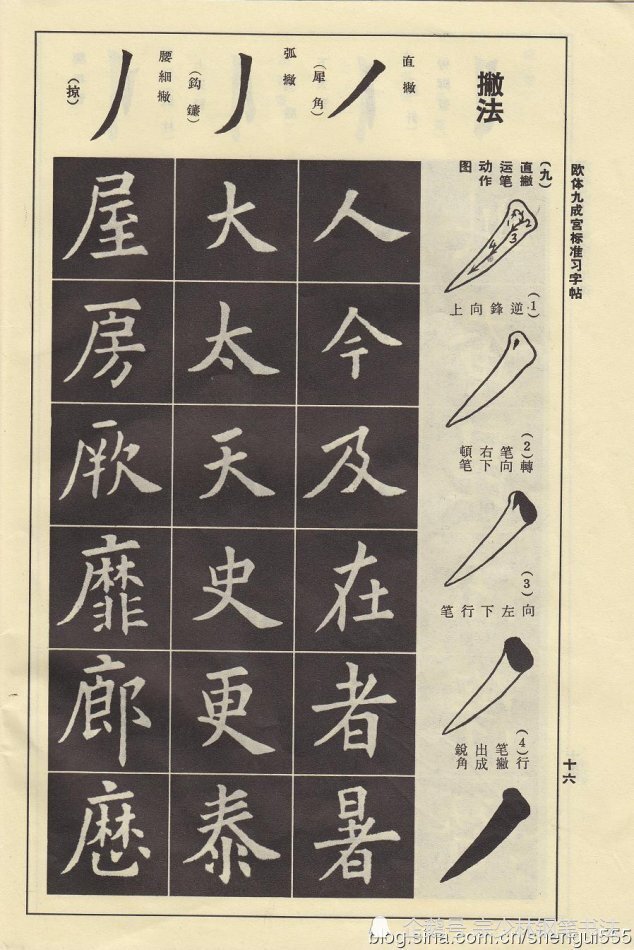 欧体九成宮标准习字帖
十六
撇法
直撇
(犀角)
弧撇
(鈎鐮)
腰細撇
(掠)
(九)直撇运笔动作图
1
2
3
4
(1)逆鋒向上
(2)轉笔向右下頓笔
(3)向左下行笔
(4)行笔撇出成鋭角
人今及在者暑
大太天史更泰
屋房厥靡廊
企鹅号
blog.sina.com.cn/shengui555